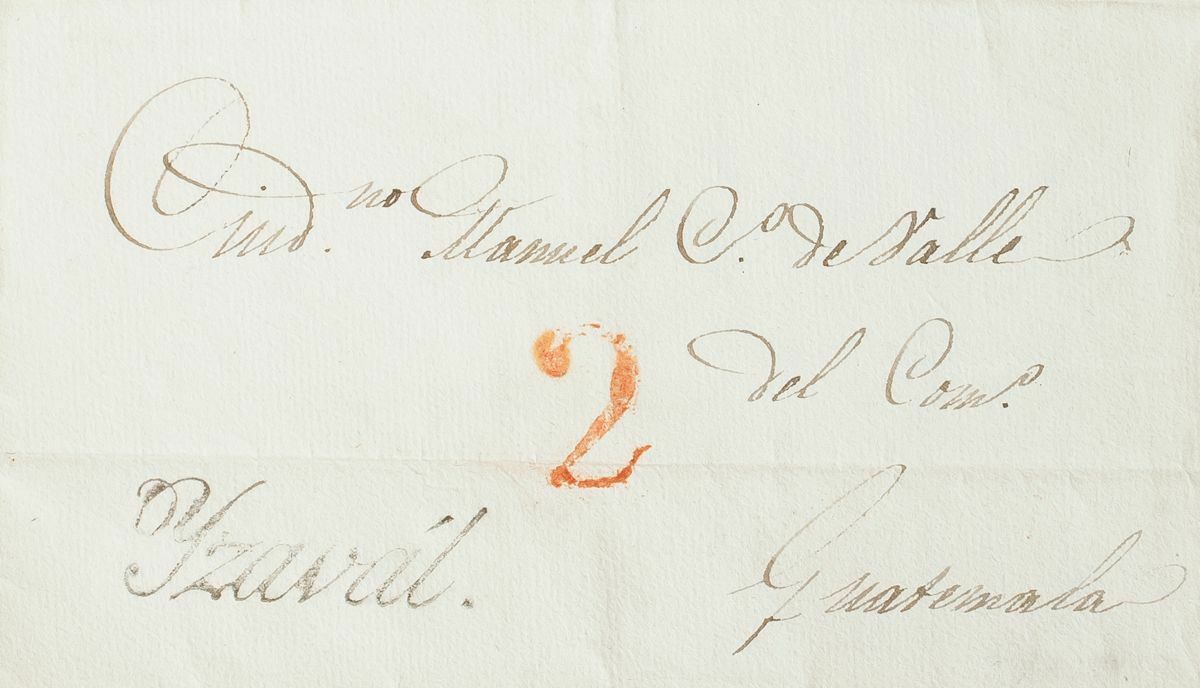 Ciud.no Manuel C.o de Valle
2
del Como.
Yzavál.
Guatemala